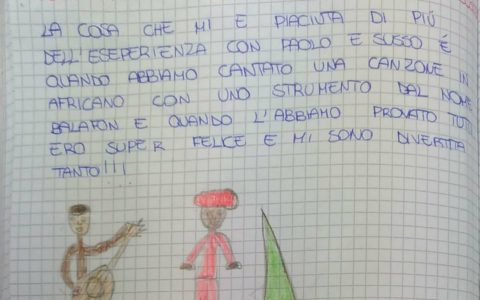 LA COSA CHE MI È PIACIUTA DI PIÚ
DELL'ESEPERIENZA CON PAOLO E SUSSO É
QUANDO ABBIAMO CANTATO UNA CANZONE IN
AFRICANO CON UNO STRUMENTO DAL NOME
BALAFON E QUANDO L'ABBIAMO PROVATO TUTTI
ERO SUPER FELICE E MI SONO DIVERTITA
TANTO!!!